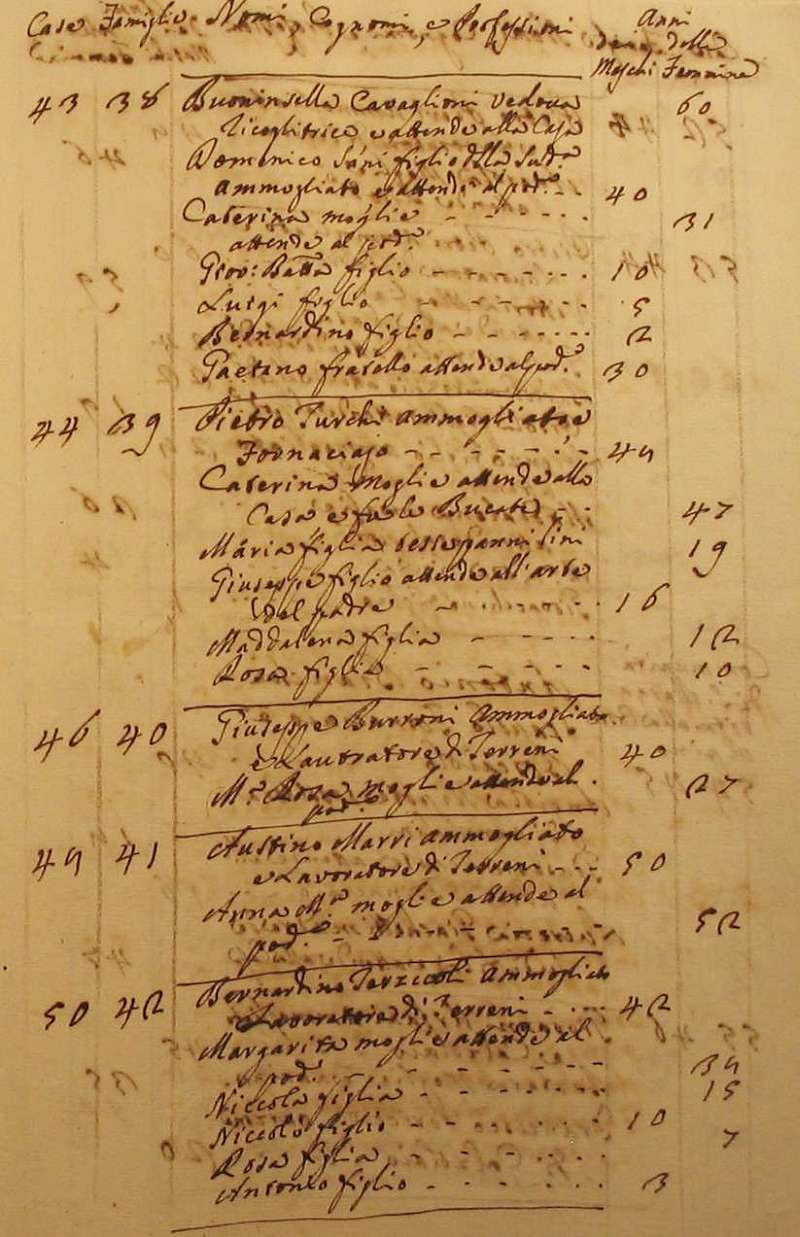 Case Famiglie Nomi, Cognomi, e Professioni Anni
delli
Maschi Femmine
43 38 Buoninsella Cavaglioni vedova 60
e attende alla Casa
Domenico figlio della Sud.a
Ammogliato e attende al pod.e 40
Caterina moglie 31
attende al pod.e
Giov: Batta figlio 10
Luigi figlio 5
Bernardino figlio 2
Gaetano fratello attende al pod.e 30
44 39 Pietro Turchi Ammogliato e
Fornaciajo 49
Caterina Moglie attende alla
Casa e fa le Bucate 47
Maria figlia tesse panni lini 19
Giuseppe figlio attende all'arte
del padre 16
Maddalena figlia 12
Rosa figlia 10
46 40 Giuseppe Burroni Ammogliato
e Lavoratore di Terreni 40
M.a Rosa moglie attende al 27
pod.e
49 41 Austino Marri ammogliato
e Lavoratore di Terreni 50
Anna M.a moglie attende al
pod.e 52
50 42 Bernardino Terzicoli Ammogliato
Lavoratore di Terreni 42
Margarita moglie attende al
pod. 39
Niccola figlia 15
Niccolò figlio 10
Rosa figlia 7
Antonio figlio 3